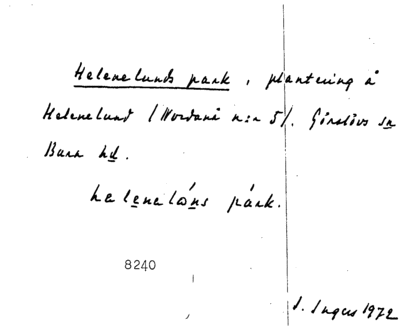 Helenelunds park, plantering å
Helenelund (Nordanå n:r 5). Görslövs sn
Bara hd.
helenelóns párk.
8240
S. Ingers 1972